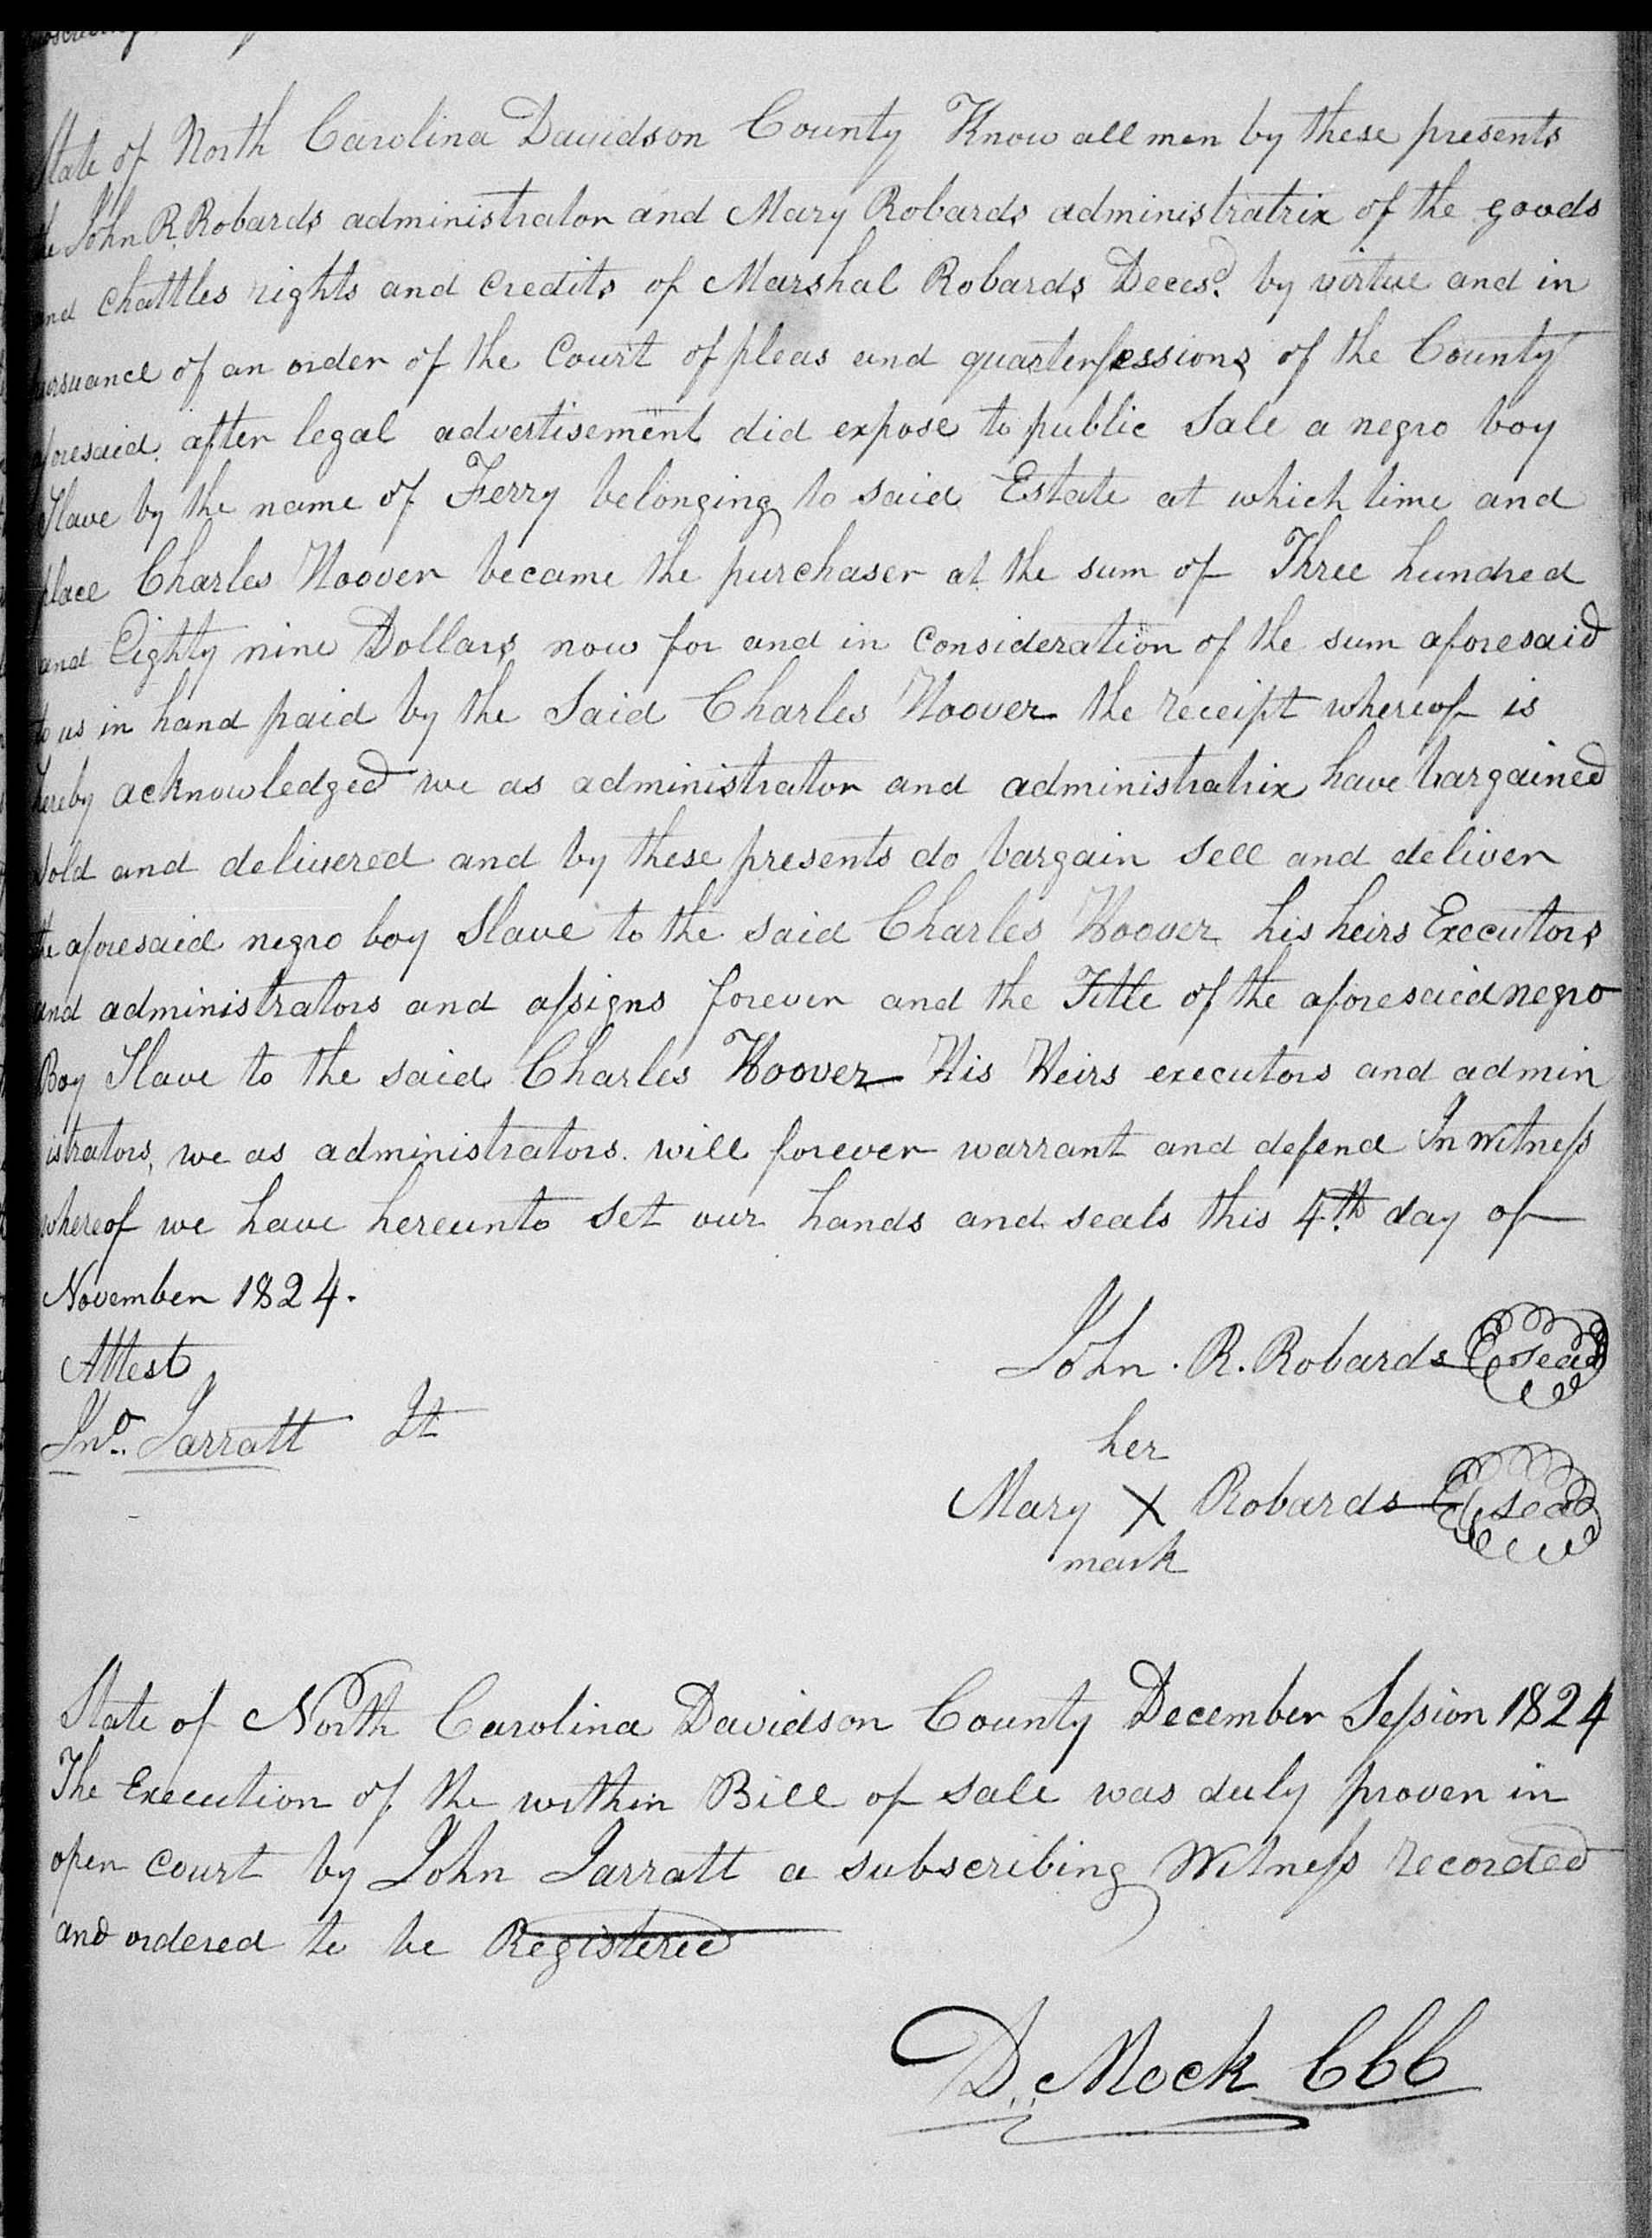 State of North Carolina Davidson County Know all men by these presents
We John R. Robards administrator and Mary Robards administratrix of the goods
and chattles rights and credits of Marshal Robards Decesd. by virtue and in
pursuance of an order of the Court of pleas and quartersessions of the County
aforesaid after legal advertisement did expose to public Sale a negro boy
Slave by the name of Ferry belonging to said Estate at which time and
place Charles Hoover became the purchaser at the sum of Three hundred
and Eighty nine Dollars now for and in consideration of the sum aforesaid
to us in hand paid by the Said Charles Hoover the receipt whereof is
hereby acknowledged we as administrator and administratrix have bargained
Sold and delivered and by these presents do bargain sell and deliver
the aforesaid negro boy Slave to the said Charles Hoover his heirs Executors
and administrators and assigns forever and the Title of the aforesaid negro
Boy Slave to the said Charles Hoover His Heirs executors and admin
istrators, we as administrators. will forever warrant and defend In Witness
whereof we have hereunto set our hands and seals this 4th day of
November 1824.
Attest
John. R. Robards seal
Jno. Jarratt Jt
her
Mary X Robards seal
mark
State of North Carolina Davidson County December Session 1824
The Execution of the within Bill of sale was duly proven in
open court by John Jarratt a subscribing Witness recorded
and ordered to be Registered
D. Mock CCC